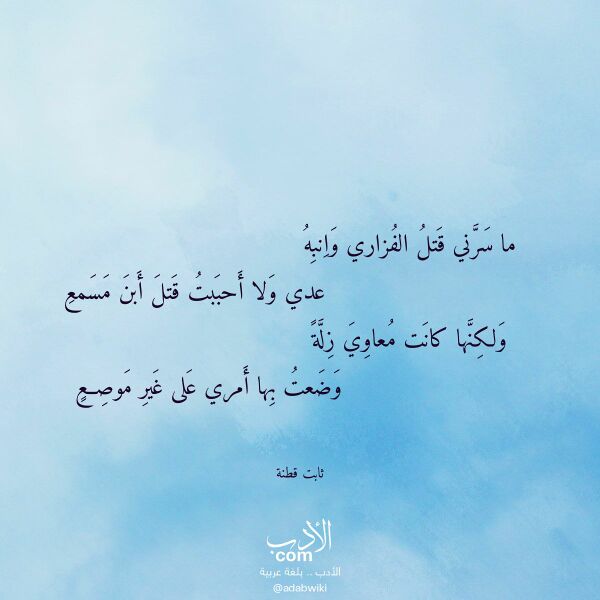 ما سَرَّني قَتلُ الفُزاري وَاِنبِهُ
عدي وَلا أَحبَبتُ قَتلَ أَبنَ مَسَمعِ
وَلكِنَّها كانَت مُعاوِيَ زِلَّةً
وَضَعتُ بِها أَمري عَلى غَيرِ مَوصِعٍ
ثابت قطنة
الأدب
com
الأدب .. بلغة عربية
@adabwiki